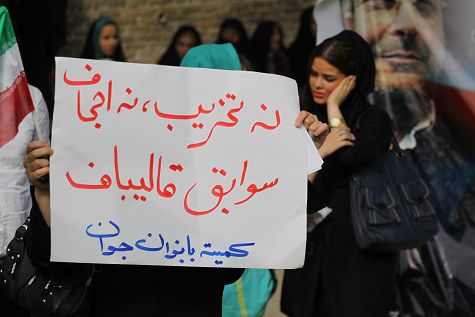 نه تخریب، نه اجحاف
سوابق قالیباف
کمیته بانوان جوان